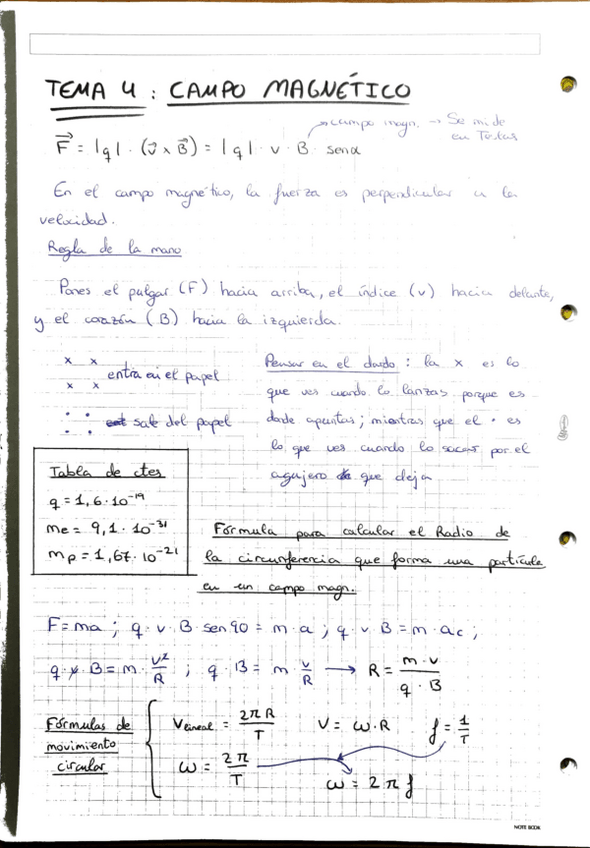 TEMA 4 : CAMPO MAGNÉTICO
→ campo magn. → Se mide en Teslas
F⃗ = |q| · (v⃗ x B⃗) = |q| · v · B · senα
En el campo magnético, la fuerza es perpendicular a la
velocidad.
Regla de la mano
Pones el pulgar (F) hacia arriba, el índice (v) hacia delante,
y el corazón (B) hacia la izquierda.
x x
x x entra en el papel
· ·
· · sale del papel
Pensar en el dardo : la x es lo
que ves cuando lo lanzas porque es
donde apuntas; mientras que el · es
lo que ves cuando lo sacas por el
agujero que deja
Tabla de ctes
q = 1,6 · 10⁻¹⁹
me = 9,1 · 10⁻³¹
mp = 1,67 · 10⁻²¹
Fórmula para calcular el Radio de
la circunferencia que forma una partícula
en un campo magn.
F = ma ; q · v · B · sen 90 = m · a ; q · v · B = m · ac ;
q · v · B = m · v²/R ; q · B = m · v/R → R = m · v / q · B
Fórmulas de
movimiento
circular
Vlineal = 2πR/T V = ω · R f = 1/T
ω = 2π/T → ω = 2πf
NOTE BOOK